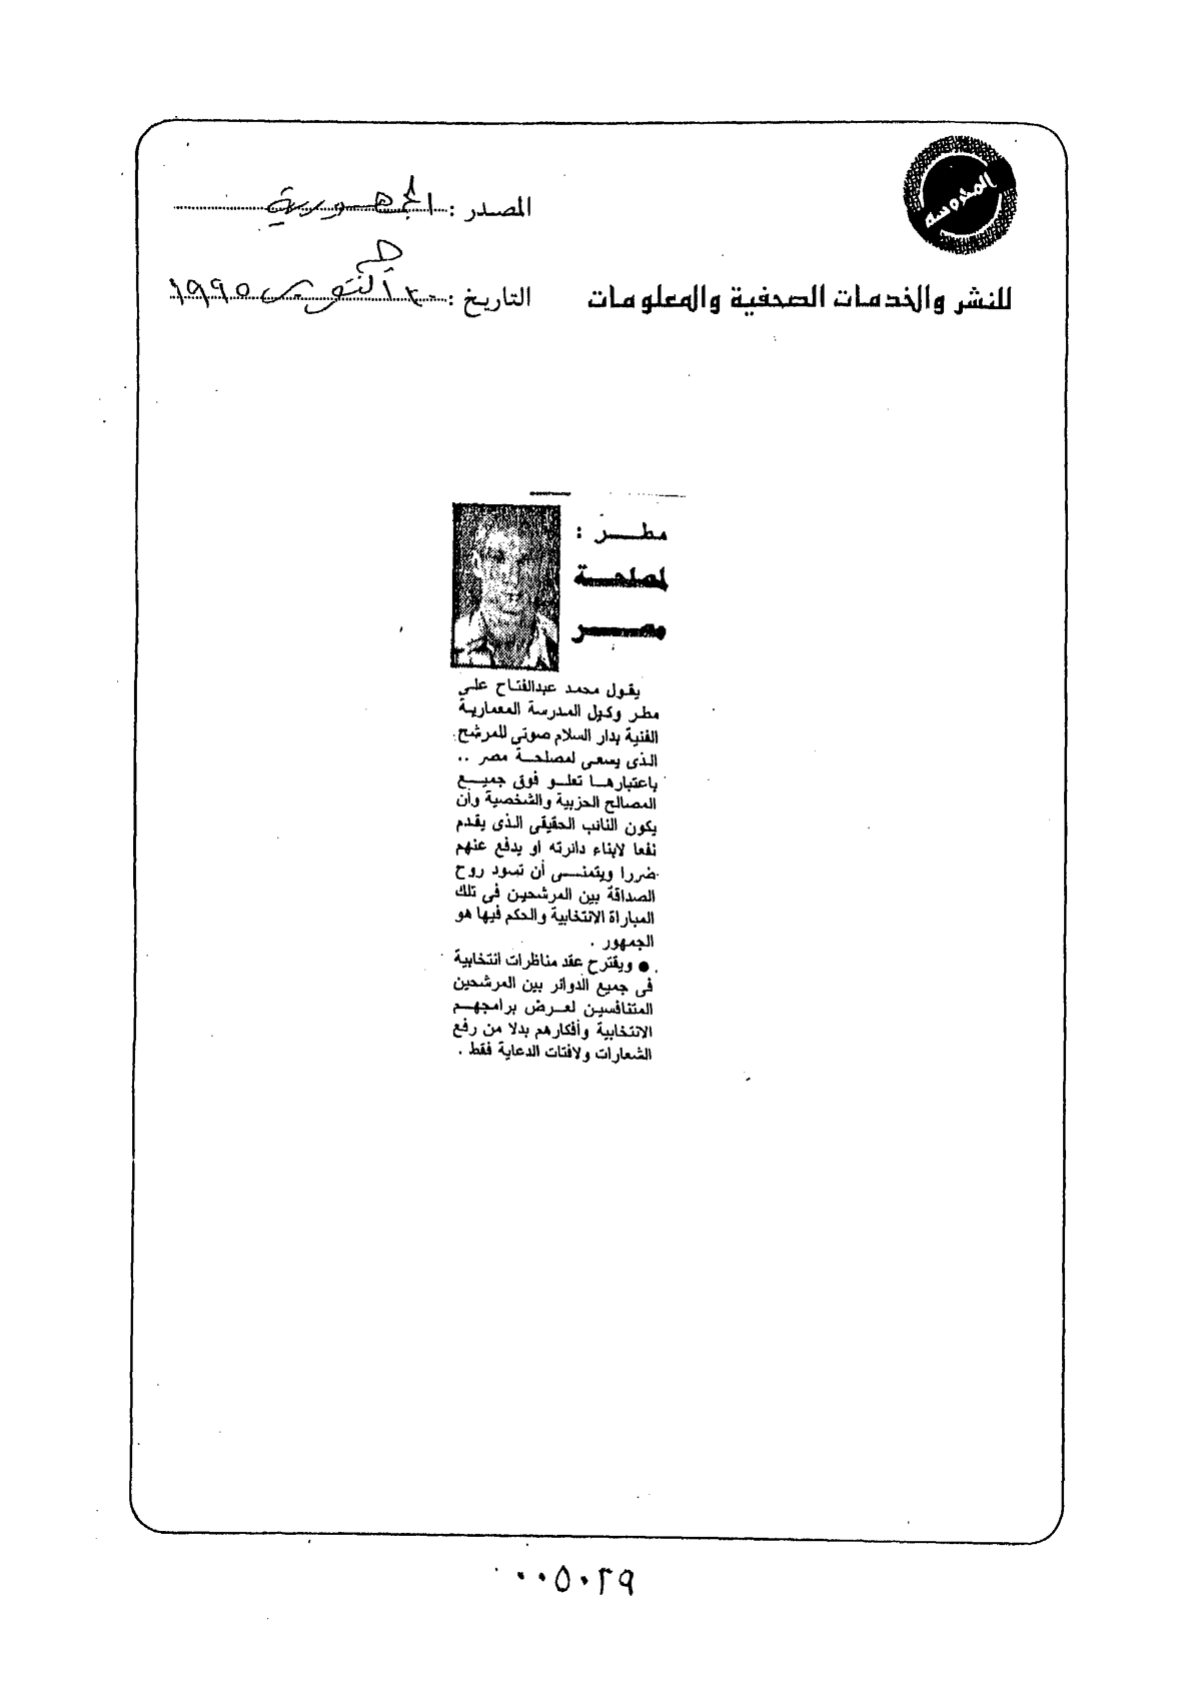 المحروسة
المصدر : الجمهورية
للنشر والخدمات الصحفية والمعلومات
التاريخ : أكتوبر ١٩٩٥
مطـــر :
لمصلحـــة
مصـــــر
يقول محمد عبدالفتاح على
مطر وكيل المدرسة المعمارية
الفنية بدار السلام صوتى للمرشح
الذى يسعى لمصلحة مصر ..
باعتبارها تعلو فوق جميع
المصالح الحزبية والشخصية وأن
يكون النائب الحقيقى الذى يقدم
نفعا لابناء دائرته او يدفع عنهم
ضررا ويتمنى أن تسود روح
الصداقة بين المرشحين فى تلك
المباراة الانتخابية والحكم فيها هو
الجمهور .
● ويقترح عقد مناظرات انتخابية
فى جميع الدوائر بين المرشحين
المتنافسين لعرض برامجهم
الانتخابية وأفكارهم بدلا من رفع
الشعارات ولافتات الدعاية فقط .
٠٠٥٠٢٩